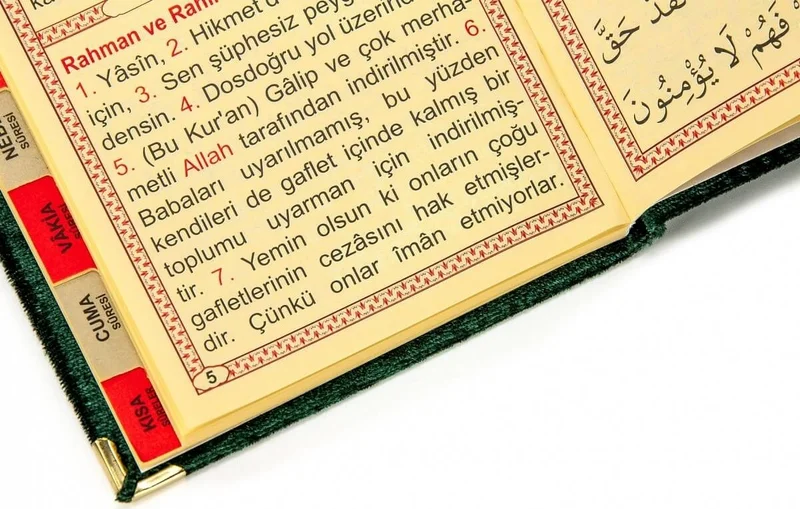 Rahman ve Rahi
1. Yâsîn, 2. Hikmet
için, 3. Sen şüphesiz peyg
densin. 4. Dosdoğru yol üzerind
5. (Bu Kur'an) Gâlip ve çok merha-
metli Allah tarafından indirilmiştir. 6.
Babaları uyarılmamış, bu yüzden
kendileri de gaflet içinde kalmış bir
toplumu uyarman için indirilmiş-
tir. 7. Yemin olsun ki onların çoğu
gafletlerinin cezâsını hak etmişler-
dir. Çünkü onlar îmân etmiyorlar.
5
NEB
SÛRESİ
VÂKIA
SÛRESİ
CUMA
SÛRESİ
KISA
SÛRELER
حَقَّ
فَهُمْ لَا يُؤْمِنُونَ